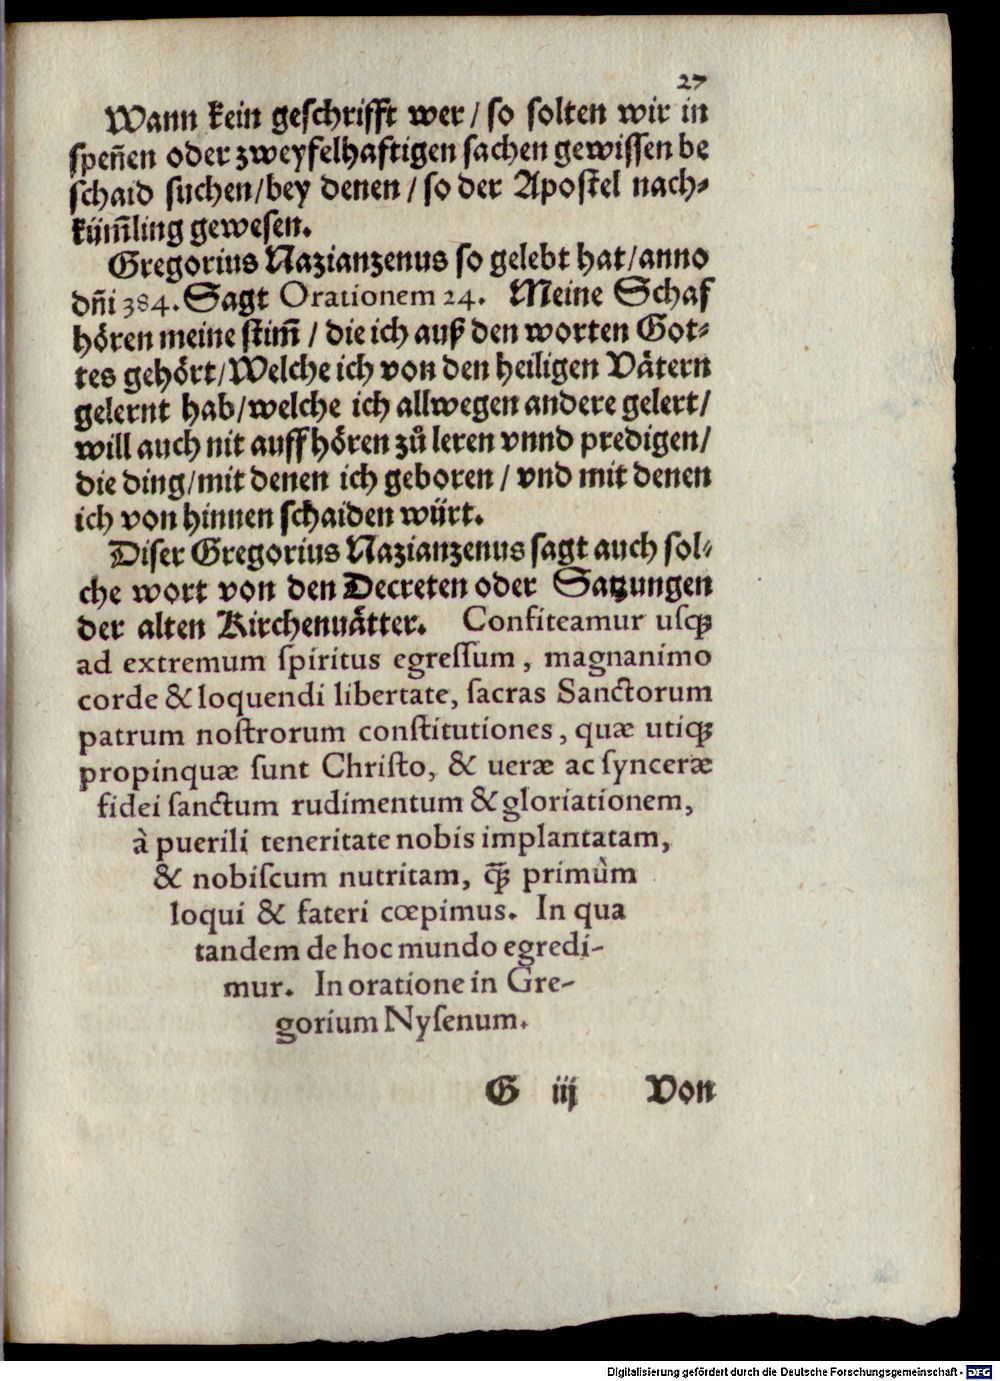 27
Wann kein geschrifft wer / so solten wir in
speñen oder zweyfelhafftigen sachen gewissen be
schaid suchen / bey denen / so der Apostel nach⸗
küm̃ling gewesen.
Gregorius Nazianzenus so gelebt hat / anno
dñi 384. Sagt Orationem 24. Meine Schaf
hören meine stim̃ / die ich auß den worten Got⸗
tes gehört / Welche ich von den heiligen Vätern
gelernt hab / welche ich allwegen andere gelert /
will auch nit auffhören zů leren vnnd predigen /
die ding / mit denen ich geboren / vnd mit denen
ich von hinnen schaiden würt.
Diser Gregorius Nazianzenus sagt auch sol⸗
che wort von den Decreten oder Satzungen
der alten Kirchenuätter. Confiteamur usqꝫ
ad extremum spiritus egressum, magnanimo
corde & loquendi libertate, sacras Sanctorum
patrum nostrorum constitutiones, quæ utiqꝫ
propinquæ sunt Christo, & ueræ ac synceræ
fidei sanctum rudimentum & gloriationem,
à puerili teneritate nobis implantatam,
& nobiscum nutritam, q̃ꝫ primùm
loqui & fateri cœpimus. In qua
tandem de hoc mundo egredi-
mur. In oratione in Gre-
gorium Nysenum.
G iij Von
Digitalisierung gefördert durch die Deutsche Forschungsgemeinschaft - DFG